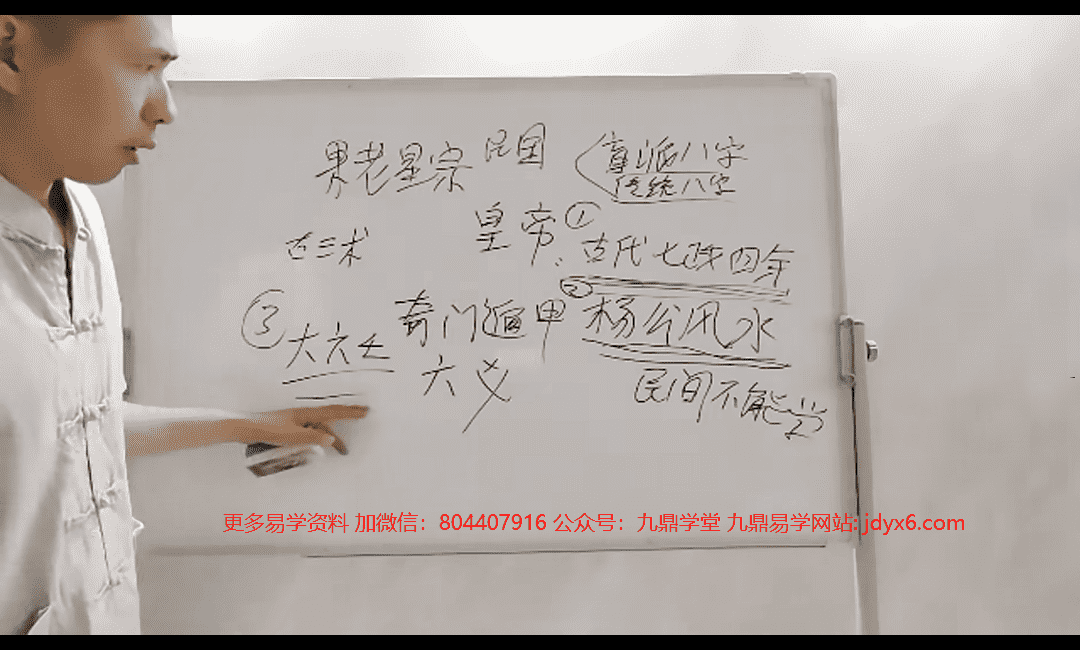 果老星宗 民国 盲派八字
传统八字
皇帝、① 古代七政四余
古三术
③ 大六壬 奇门遁甲 ② 杨公风水
六义
民间不能学
更多易学资料 加微信：804407916 公众号：九鼎学堂 九鼎易学网站: jdyx6.com